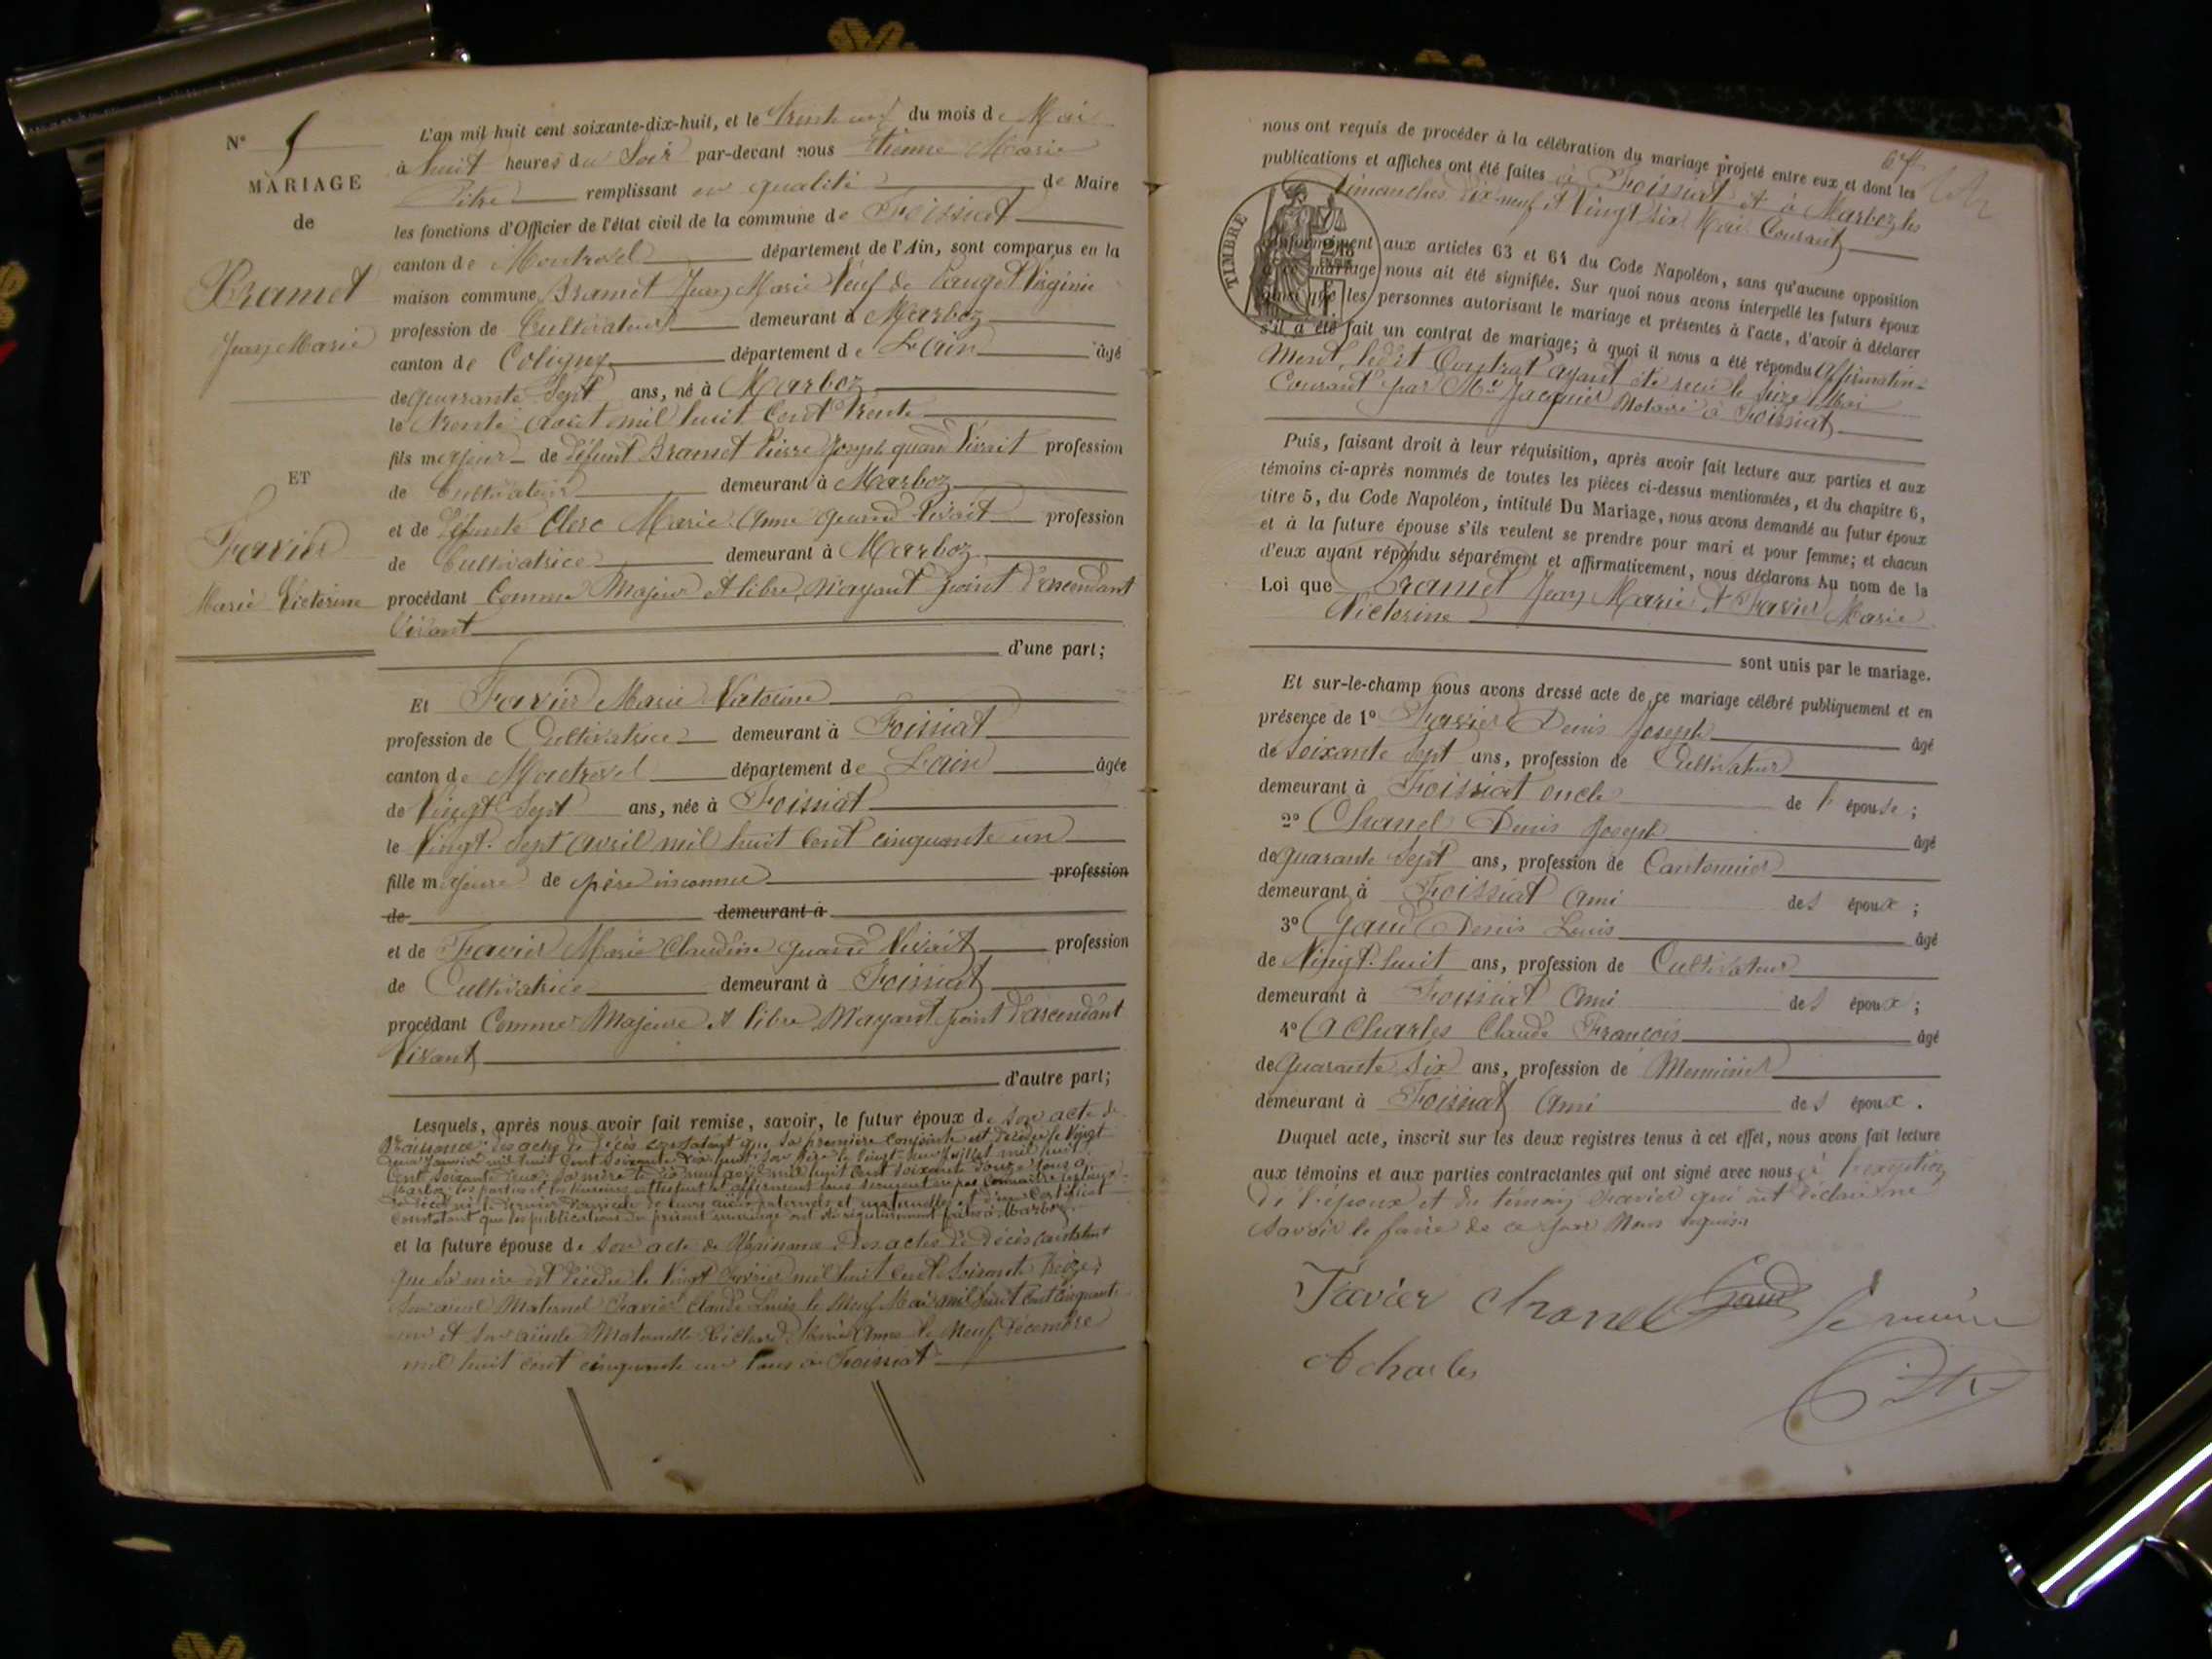 N° 5
MARIAGE
de
Bramet
Jean Marie
ET
Favier
Marie Victorine
L'an mil huit cent soixante-dix-huit, et le trente un du mois de Mai
à huit heures du Soir par-devant nous Etienne Marie
Pitre remplissant en qualité de Maire
les fonctions d'Officier de l'état civil de la commune de Foissiat
canton de Montrevel département de l'Ain, sont comparus en la
maison commune Bramet Jean Marie Veuf de Cauget Virginie
profession de Cultivateur demeurant à Marboz
canton de Coligny département de L'Ain âgé
de quarante Sept ans, né à Marboz
le trente août mil huit Cent trente
fils majeur de défunt Bramet Pierre Joseph quand Vivait profession
de Cultivateur demeurant à Marboz
et de défunte Clerc Marie Anne quand Vivait profession
de Cultivatrice demeurant à Marboz
procédant Comme Majeur et libre, N'ayant point d'ascendant
Vivant
d'une part;
Et Favier Marie Victorine
profession de Cultivatrice demeurant à Foissiat
canton de Montrevel département de L'ain âgée
de Vingt Sept ans, née à Foissiat
le Vingt Sept avril mil huit Cent cinquante un
fille majeure de père inconnu profession
de demeurant à
et de Favier Marie Claudine quand Vivait profession
de Cultivatrice demeurant à Foissiat
procédant Comme Majeure et libre N'ayant point d'ascendant
Vivant
d'autre part;
Lesquels, après nous avoir fait remise, savoir, le futur époux de son acte de
Naissance des actes de décès constatant que sa première conjointe est décédée le Vingt
Janvier mil huit Cent Soixante Dix huit, son père le Vingt Juillet mil huit
Cent Soixante deux, sa mère le dix neuf août mil huit Cent Soixante douze tous à
Marboz, les parties et les témoins attestent et affirment sous serment ne pas connaitre
de décès ni le dernier domicile de leurs aïeux paternels et maternelles et d'un Certificat
Constatant que les publications du présent mariage ont été régulièrement faites à Marboz
et la future épouse de Son acte de Naissance, Des actes de Décès constatant
que Sa mère est décédée le Vingt Janvier mil huit Cent Soixante treize,
Son aïeul Maternel Favier Claude Louis le Neuf Mai mil huit Cent Cinquante
un et Son aïeule Maternelle Richard Marie Anne le Neuf Décembre
mil huit cent cinquante un tous à Foissiat
67
nous ont requis de procéder à la célébration du mariage projeté entre eux et dont les
publications et affiches ont été faites à Foissiat et à Marboz les
Dimanches dix neuf et Vingt Six Mai Courant
TIMBRE
conformément aux articles 63 et 64 du Code Napoléon, sans qu'aucune opposition
à ce mariage nous ait été signifiée. Sur quoi nous avons interpellé les futurs époux
ainsi que les personnes autorisant le mariage et présentes à l'acte, d'avoir à déclarer
s'il a été fait un contrat de mariage; à quoi il nous a été répondu Affirmative-
Ment, ledit Contrat ayant été reçu le Seize Mai
Courant par Me Jacquier Notaire à Foissiat
Puis, faisant droit à leur réquisition, après avoir fait lecture aux parties et aux
témoins ci-après nommés de toutes les pièces ci-dessus mentionnées, et du chapitre 6,
titre 5, du Code Napoléon, intitulé Du Mariage, nous avons demandé au futur époux
et à la future épouse s'ils veulent se prendre pour mari et pour femme; et chacun
d'eux ayant répondu séparément et affirmativement, nous déclarons Au nom de la
Loi que Bramet Jean Marie et Favier Marie
Victorine
sont unis par le mariage.
Et sur-le-champ nous avons dressé acte de ce mariage célébré publiquement et en
présence de 1° Favier Denis Joseph âgé
de Soixante Sept ans, profession de Cultivateur
demeurant à Foissiat oncle de l' épouse;
2° Chanel Denis Joseph âgé
de quarante Sept ans, profession de Cantonnier
demeurant à Foissiat Ami des époux;
3° Gaud Denis Louis âgé
de Vingt huit ans, profession de Cultivateur
demeurant à Foissiat Ami des époux;
4° Acharles Claude François âgé
de quarante Six ans, profession de Menuisier
demeurant à Foissiat Ami des époux.
Duquel acte, inscrit sur les deux registres tenus à cet effet, nous avons fait lecture
aux témoins et aux parties contractantes qui ont signé avec nous à l'exception
de l'époux et du témoin Favier qui ont déclaré ne
Savoir le faire de ce par Nous requis
Favier Chanel Gaud le maire
Acharles Pitre